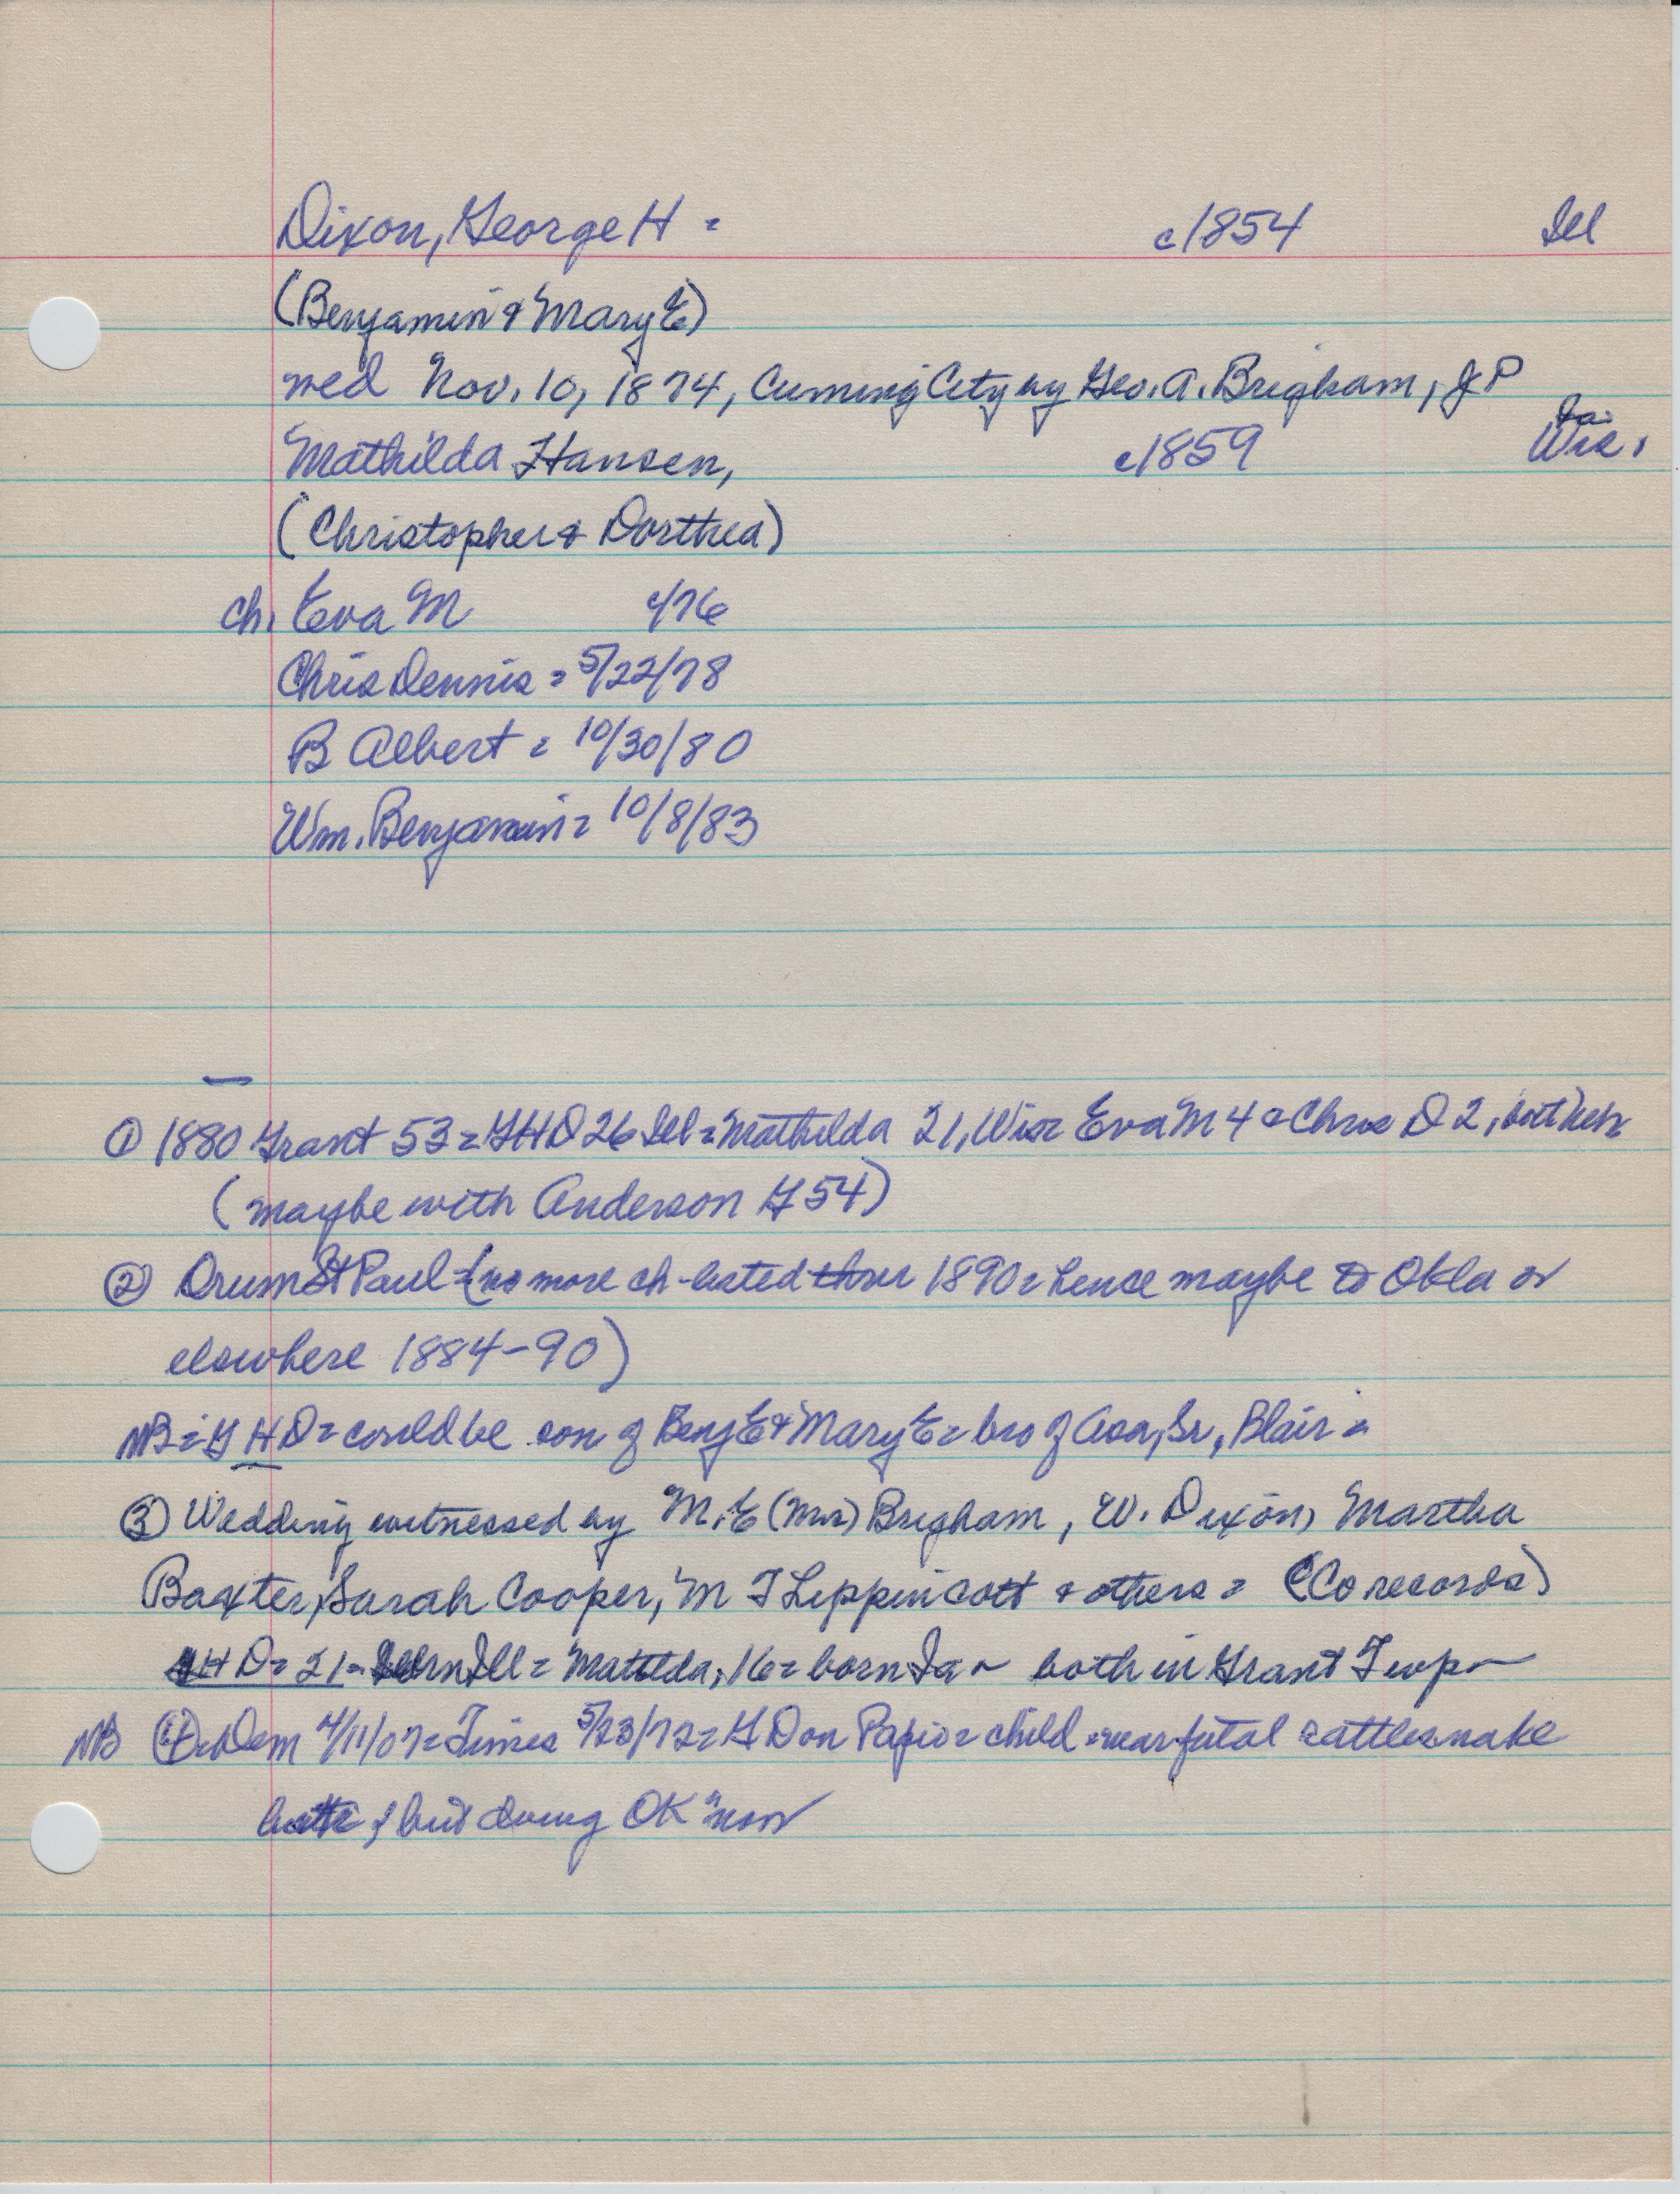 Dixon, George H = c1854 Ill
(Benjamin & Mary E)
med Nov. 10, 1874, Cuming City by Geo. A. Brigham, JP
Ia.
Mathilda Hansen, c1859 Wis.
(Christopher & Dorthea)
ch. Eva M c/76
Chris Dennis = 5/22/78
B Albert = 10/30/80
Wm. Benjamin = 10/8/83
① 1880 Grant 53 = GHD 26 Ill = Mathilda 21, Wis = Eva M 4 = Chris D 2, both Neb
(maybe with Anderson G 54)
② Drum St Paul = (no more ch - listed thru 1890 = hence maybe to Okla or
elsewhere 1884-90)
NB = G H D = could be son of Benj E & Mary E = bro of Asa, Sr, Blair =
③ Wedding witnessed by M. E (Mrs) Brigham, W. Dixon, Martha
Baxter, Sarah Cooper, M F Lippincott & others = (Co records)
GHD = 21 = Ill = Matilda, 16 = born Ia ~ both in Grant Twp ~
NB ④ Dem 4/11/07 = Times 5/23/72 = G D on Papio = child = near fatal rattlesnake
but doing OK now